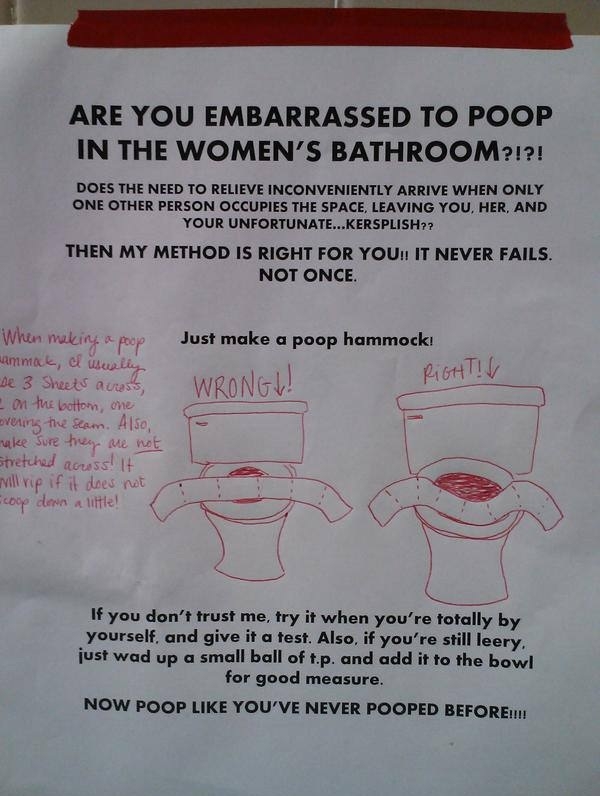 ARE YOU EMBARRASSED TO POOP
IN THE WOMEN'S BATHROOM?!?!
DOES THE NEED TO RELIEVE INCONVENIENTLY ARRIVE WHEN ONLY
ONE OTHER PERSON OCCUPIES THE SPACE, LEAVING YOU, HER, AND
YOUR UNFORTUNATE...KERSPLISH??
THEN MY METHOD IS RIGHT FOR YOU!! IT NEVER FAILS.
NOT ONCE.
Just make a poop hammock!
When making a poop
ammock, I usually
se 3 Sheets across,
2 on the bottom, one
overing the seam. Also,
make sure they are not
stretched across! It
will rip if it does not
scoop down a little!
WRONG↓!
RiGHT!↓
If you don't trust me, try it when you're totally by
yourself, and give it a test. Also, if you're still leery,
just wad up a small ball of t.p. and add it to the bowl
for good measure.
NOW POOP LIKE YOU'VE NEVER POOPED BEFORE!!!!